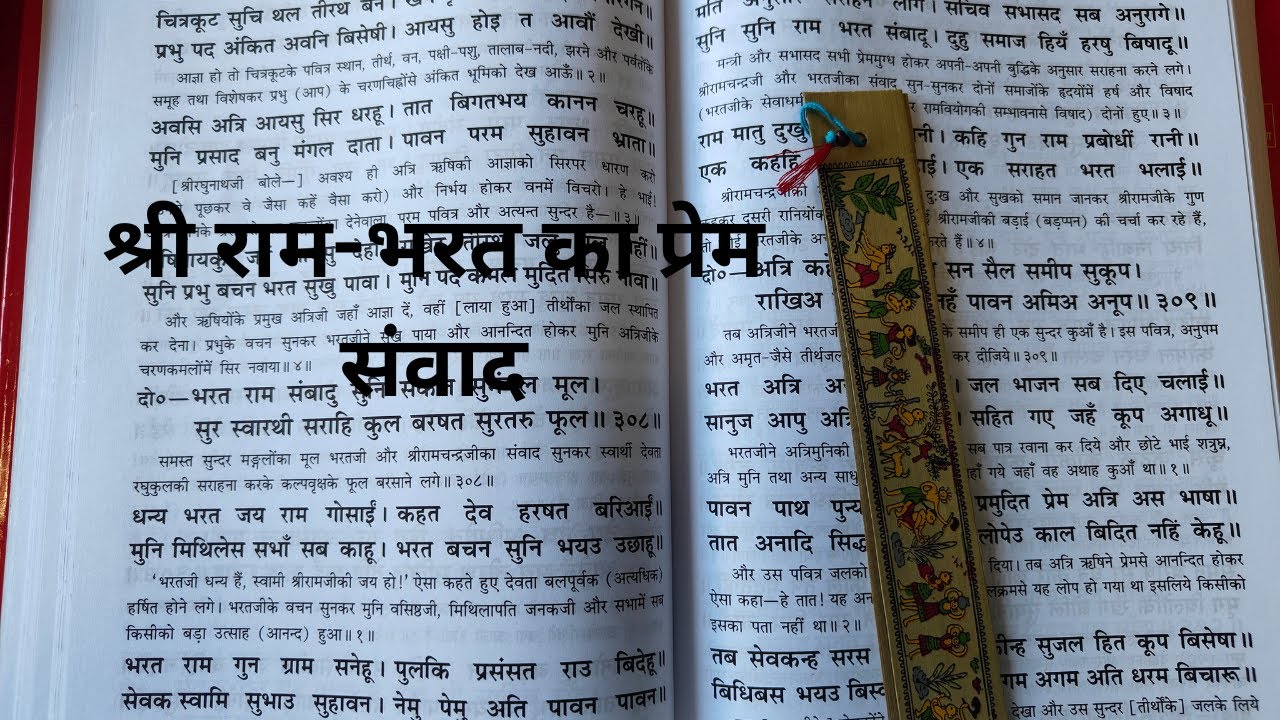 श्री राम-भरत का प्रेम
संवाद
चित्रकूट सुचि थल तीरथ बन।
प्रभु पद अंकित अवनि बिसेषी। आयसु होइ त आवौं देखी॥
आज्ञा हो तो चित्रकूटके पवित्र स्थान, तीर्थ, वन, पक्षी-पशु, तालाब-नदी, झरने और पर्वतोंके
समूह तथा विशेषकर प्रभु (आप) के चरणचिह्नोंसे अंकित भूमिको देख आऊँ॥२॥
अवसि अत्रि आयसु सिर धरहू। तात बिगतभय कानन चरहू॥
मुनि प्रसाद बनु मंगल दाता। पावन परम सुहावन भ्राता॥
[श्रीरघुनाथजी बोले—] अवश्य ही अत्रि ऋषिकी आज्ञाको सिरपर धारण करो
पूछकर वे जैसा कहें वैसा करो) और निर्भय होकर वनमें विचरो। हे भाई!
देनेवाला, परम पवित्र और अत्यन्त सुन्दर है—॥३॥
सुनि प्रभु बचन भरत सुखु पावा। मुनि पद कमल मुदित सिरु नावा॥
और ऋषियोंके प्रमुख अत्रिजी जहाँ आज्ञा दें, वहीं [लाया हुआ] तीर्थोंका जल स्थापित
कर देना। प्रभुके वचन सुनकर भरतजीने सुख पाया और आनन्दित होकर मुनि अत्रिजीके
चरणकमलोंमें सिर नवाया॥४॥
दो०—भरत राम संबादु सुनि सकल सुमंगल मूल।
सुर स्वारथी सराहि कुल बरषत सुरतरु फूल॥३०८॥
समस्त सुन्दर मङ्गलोंका मूल भरतजी और श्रीरामचन्द्रजीका संवाद सुनकर स्वार्थी देवता
रघुकुलकी सराहना करके कल्पवृक्षके फूल बरसाने लगे॥३०८॥
धन्य भरत जय राम गोसाईं। कहत देव हरषत बरिआईं॥
मुनि मिथिलेस सभाँ सब काहू। भरत बचन सुनि भयउ उछाहू॥
'भरतजी धन्य हैं, स्वामी श्रीरामजीकी जय हो!' ऐसा कहते हुए देवता बलपूर्वक (अत्यधिक)
हर्षित होने लगे। भरतजीके वचन सुनकर मुनि वसिष्ठजी, मिथिलापति जनकजी और सभामें सब
किसीको बड़ा उत्साह (आनन्द) हुआ॥१॥
भरत राम गुन ग्राम सनेहू। पुलकि प्रसंसत राउ बिदेहू॥
सेवक स्वामि सुभाउ सुहावन। नेमु पेमु अति पावन पावन॥
मति अनुसार सराहन लागे। सचिव सभासद सब अनुरागे॥
सुनि सुनि राम भरत संबादू। दुहु समाज हियँ हरषु बिषादू॥
मन्त्री और सभासद सभी प्रेममुग्ध होकर अपनी-अपनी बुद्धिके अनुसार सराहना करने लगे।
श्रीरामचन्द्रजी और भरतजीका संवाद सुन-सुनकर दोनों समाजोंके हृदयोंमें हर्ष और विषाद
(भरतजीके सेवाधर्म रामवियोगकी सम्भावनासे विषाद) दोनों हुए॥३॥
राम मातु दुखु कहि गुन राम प्रबोधीं रानी॥
एक कहहिं एक सराहत भरत भलाई॥
दुःख और सुखको समान जानकर श्रीरामजीके गुण
दूसरी रानियों श्रीरामजीकी बड़ाई (बड़प्पन) की चर्चा कर रहे हैं,
हैं॥४॥
दो०—अत्रि सन सैल समीप सुकूप।
राखिअ पावन अमिअ अनूप॥३०९॥
तब अत्रिजीने समीप ही एक सुन्दर कुआँ है। इस पवित्र, अनुपम
और अमृत-जैसे तीर्थजल कर दीजिये॥३०९॥
भरत अत्रि जल भाजन सब दिए चलाई॥
सानुज आपु अत्रि सहित गए जहँ कूप अगाधू॥
भरतजीने अत्रिमुनिकी सब पात्र रवाना कर दिये और छोटे भाई शत्रुघ्न,
अत्रि मुनि तथा अन्य गये जहाँ वह अथाह कुआँ था॥१॥
पावन पाथ प्रमुदित प्रेम अत्रि अस भाषा॥
तात अनादि लोपेउ काल बिदित नहिं केहू॥
और उस पवित्र जलको दिया। तब अत्रि ऋषिने प्रेमसे आनन्दित होकर
ऐसा कहा—हे तात! यह यह लोप हो गया था इसलिये किसीको
इसका पता नहीं था॥२॥
तब सेवकन्ह सरस सुजल हित कूप बिसेषा॥
बिधिबस भयउ अगम अति धरम बिचारू॥
देखा और उस सुन्दर [तीर्थोंके] जलके लिये